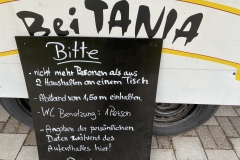 Bei TANJA
Bitte
- nicht mehr Personen als aus
2 Haushalten an einem Tisch
- Abstand von 1,50m einhalten
- WC Benutzung: 1 Person
- Angaben der persönlichen
Daten während des
Aufenthaltes hier!